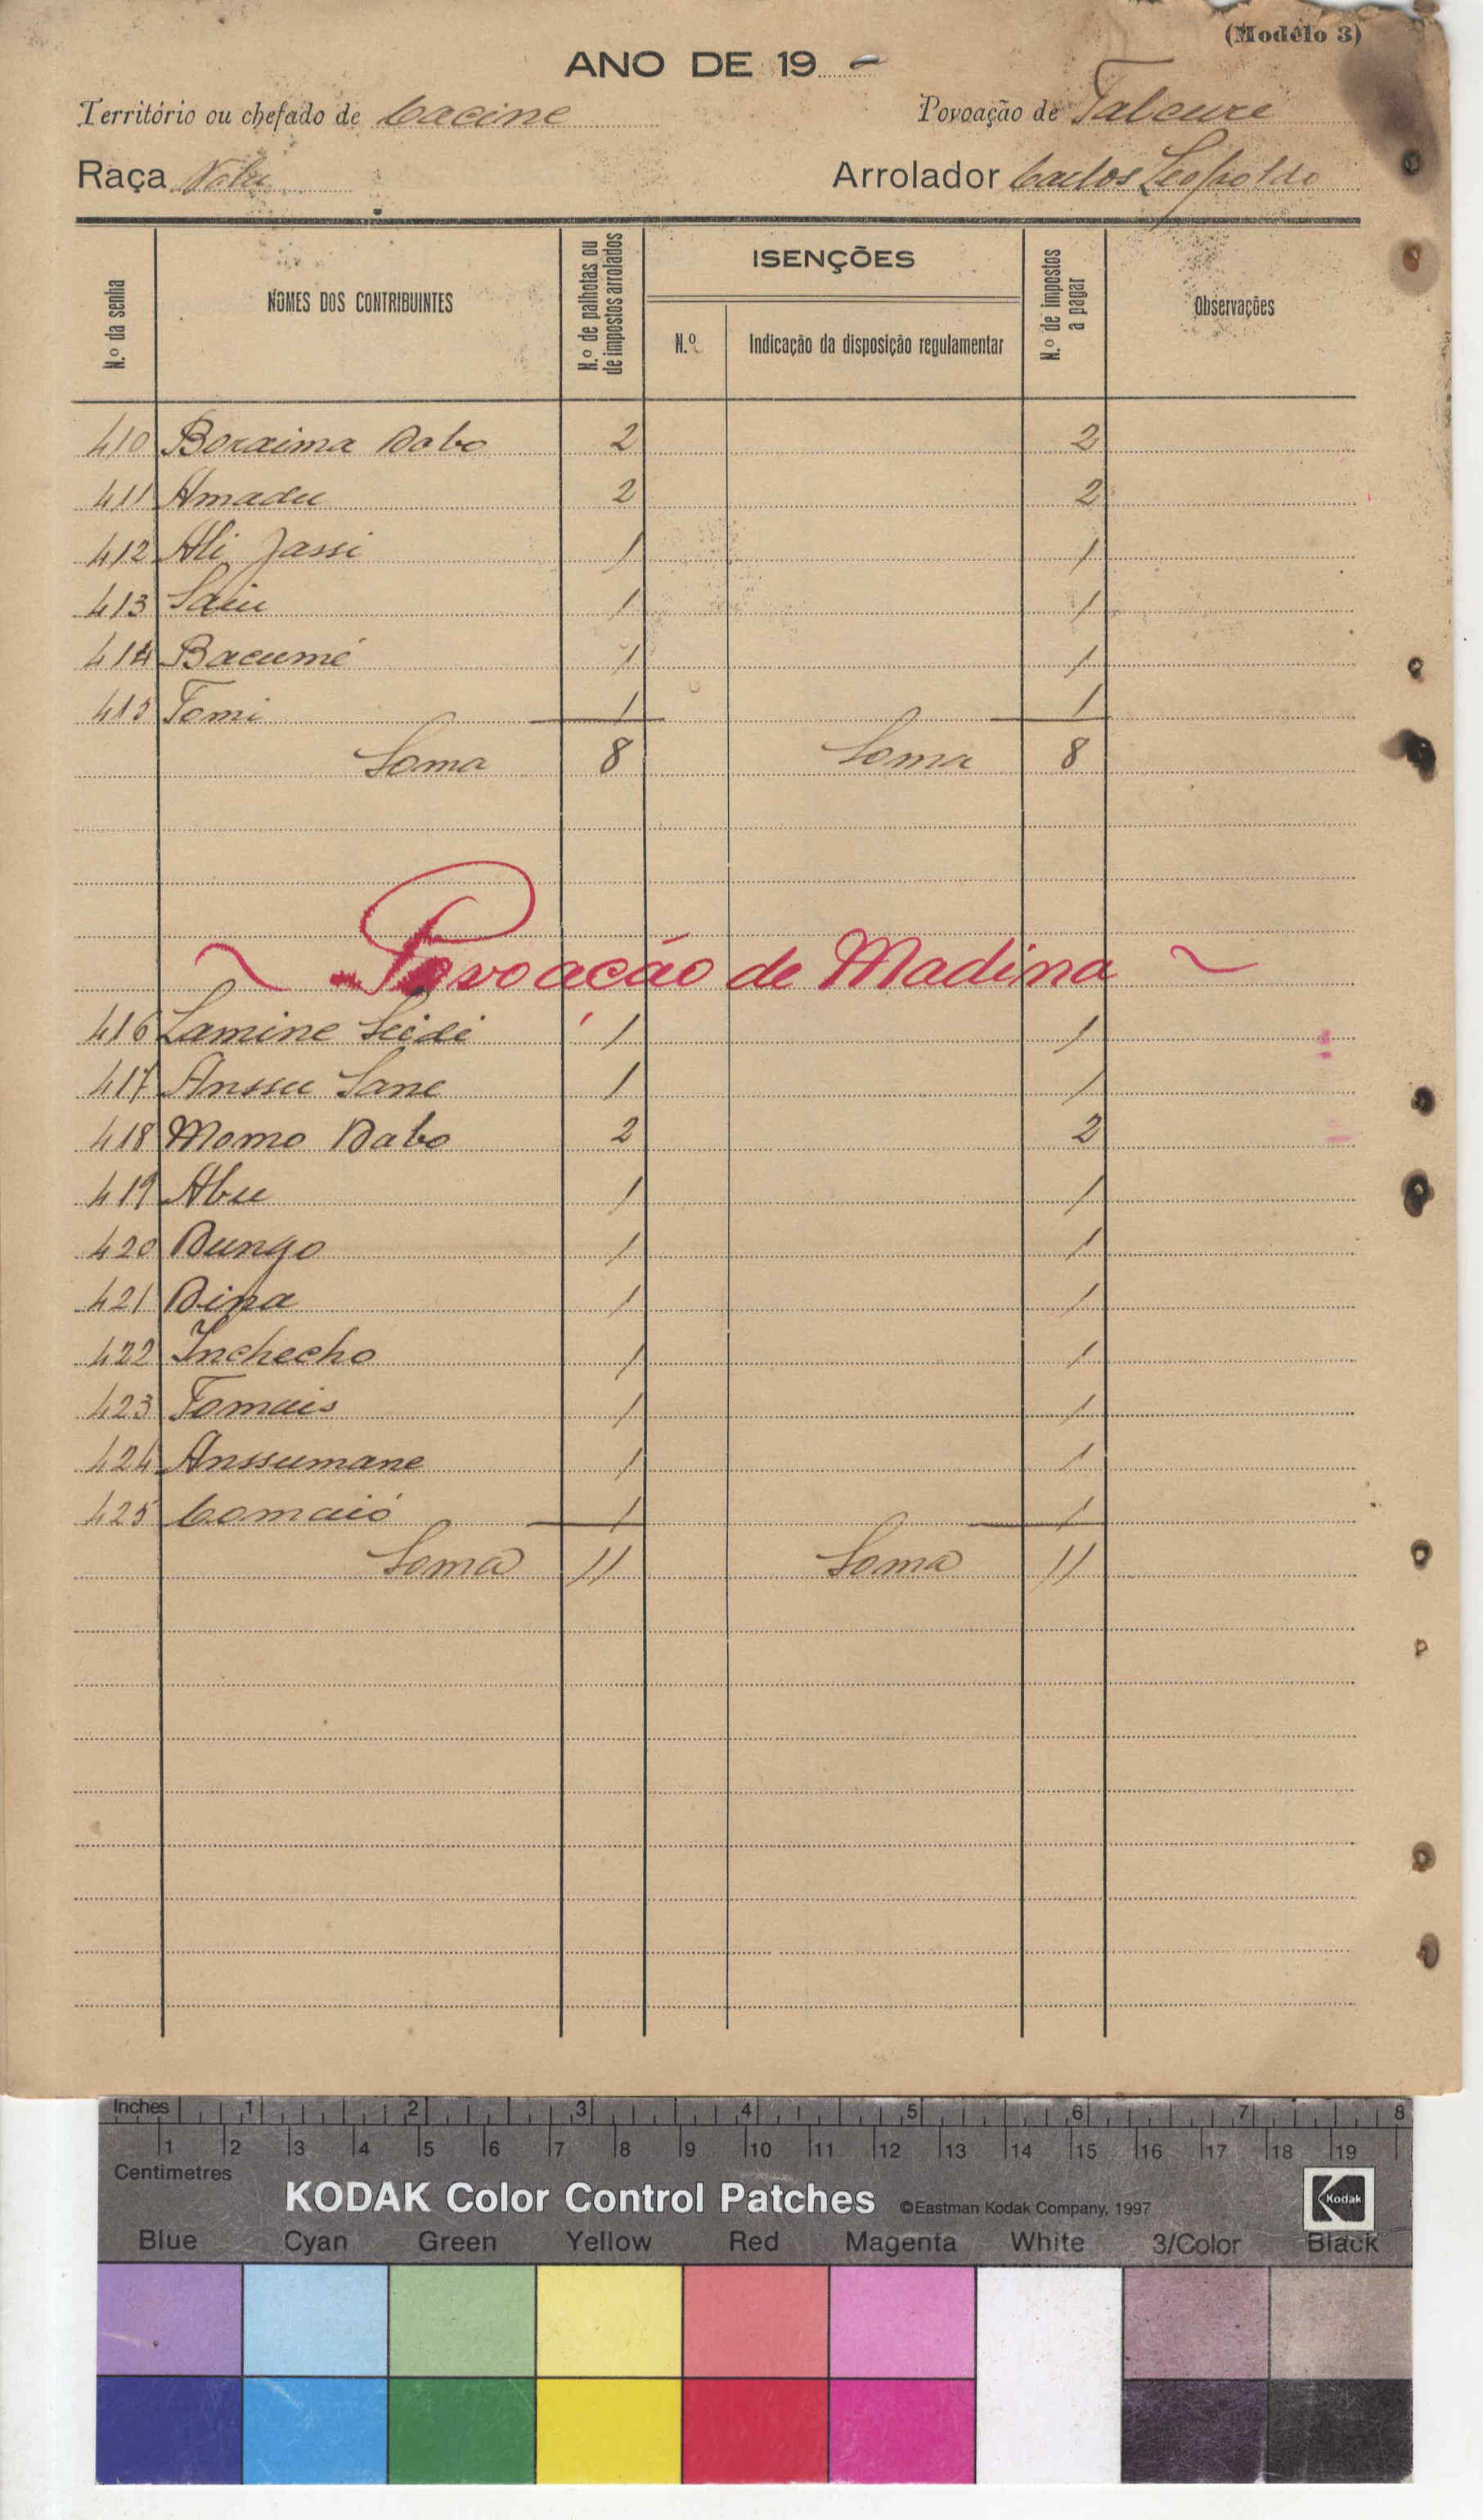 (Modêlo 3)
ANO DE 19 -
Território ou chefado de Cacine Povoação de Talcure
Raça Nalu Arrolador Carlos Leopoldo
N.º da senha NOMES DOS CONTRIBUINTES N.º de palhotas ou de impostos arrolados ISENÇÕES N.º Indicação da disposição regulamentar N.º de impostos a pagar Observações
410 Boraima Dabo 2 2
411 Amadu 2 2
412 Ali Jassi 1 1
413 Saiu 1 1
414 Bacumé 1 1
415 Tomi 1 1
Soma 8 Soma 8
~ Povoação de Madina ~
416 Lamine Seidi 1 1
417 Anssu Sane 1 1
418 Momo Dabo 2 2
419 Abu 1 1
420 Dungo 1 1
421 Dina 1 1
422 Inchecho 1 1
423 Tomais 1 1
424 Anssumane 1 1
425 Comaió 1 1
Soma 11 Soma 11
Inches 1 2 3 4 5 6 7 8
1 2 3 4 5 6 7 8 9 10 11 12 13 14 15 16 17 18 19
Centimetres
KODAK Color Control Patches ©Eastman Kodak Company, 1997 Kodak
Blue Cyan Green Yellow Red Magenta White 3/Color Black